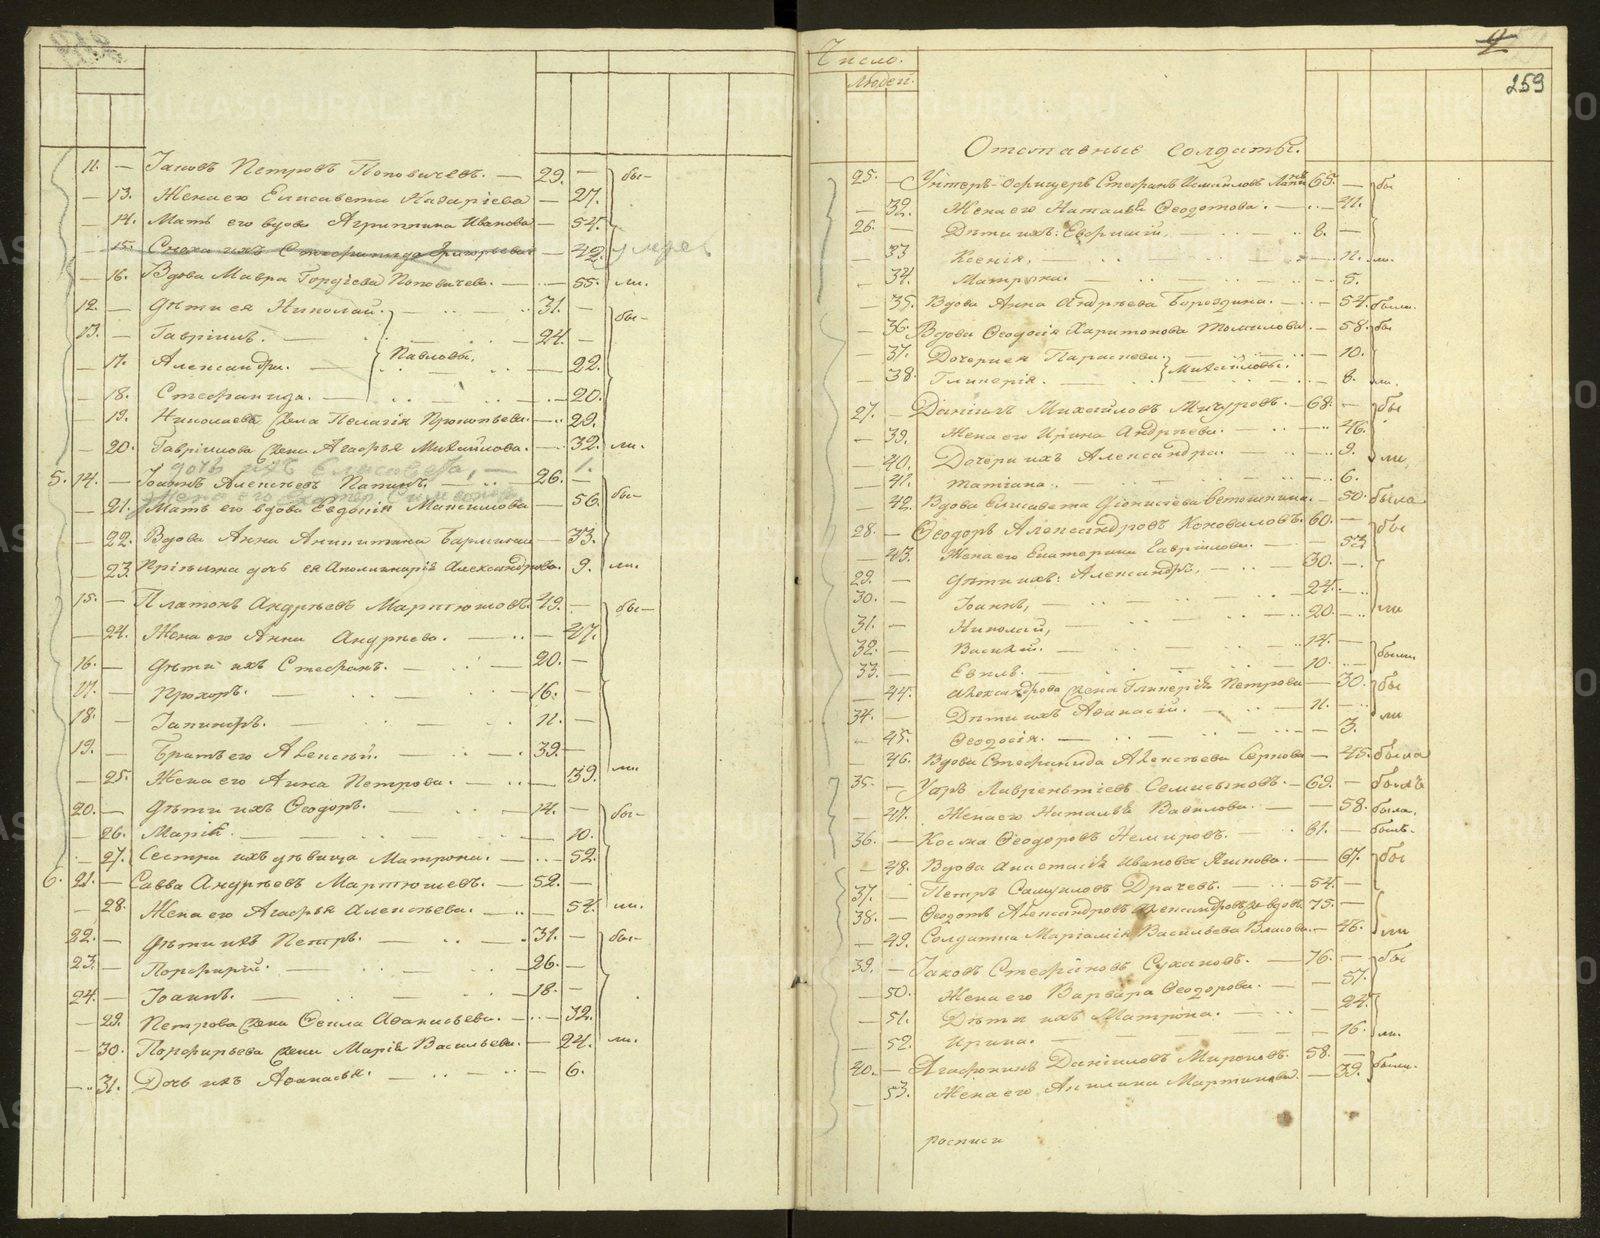 11. — Іаковъ Петровъ Поповичевъ. — 29. — бы-
— 13. Жена его Елисавета Назаріева — 27.
— 14. Мать его вдова Агриппина Иванова — 54.
— 15. Сноха ихъ Стефанида Григорьева — 42. умре
— 16. Вдова Мавра Гордѣева Поповичева. — 55. ли.
12. — Дѣти ея Николай. — 31. — бы-
13. — Гавріилъ. — 24. —
— 17. Александра. — Павловы. — 22.
— 18. Стефанида. — 20.
— 19. Николаева жена Пелагія Прокопьева. — 29.
— 20. Гавріилова жена Агафья Михайлова. — 32. ли.
дочь ихъ Елисавета, — 1.
5. 14. — Іоаннъ Алексѣевъ Папинъ. — 26. —
жена его Екатер. Симеонова
— 21. Мать его вдова Евдокія Максимова — 56. бы-
— 22. Вдова Анна Аникитина Бармина — 33.
— 23. Пріемна дочь ея Аполинарія Александрова. 9. ли.
15. — Платонъ Андреевъ Мартюшовъ. 49. — бы-
— 24. Жена его Анна Андреева. — 47.
16. — Дѣти ихъ Стефанъ. — 20. —
17. — Прохоръ. — 16. —
18. — Іануарій. — 11. —
19. — Братъ его Алексѣй. — 39. —
— 25. Жена его Анна Петрова. — 39. ли.
20. — Дѣти ихъ Ѳеодоръ. — 14. — бы-
— 26. Марія. — 10.
— 27. Сестра ихъ дѣвица Матрона. — 52.
6. 21. — Савва Андреевъ Мартюшевъ. — 52. —
— 28. Жена его Агафья Алексѣева. — 54. ли.
22. — Дѣти ихъ Петръ. — 31. — бы-
23. — Порфирій. — 26. —
24. — Іоаннъ. — 18. —
— 29. Петрова жена Ѳекла Аѳанасьева. — 32.
— 30. Порфирьева жена Марія Васильева. — 24. ли.
— 31. Дочь ихъ Аѳанасья. — 6.
Число.
Людей.
259
Отставные солдаты.
25. — Унтеръ-офицеръ Стефанъ Измайловъ 65. — бы
— 32. Жена его Наталья Ѳеодотова. — 41.
26. — Дѣти ихъ: Евфимій, — 8. —
— 33 Ксенія, — 11. ли.
— 34. Матрона. — 5.
— 35. Вдова Анна Андреева Бороздина. — 54. была.
— 36. Вдова Ѳеодосія Харитонова Томилова. — 58. бы
— 37. Дочери ея Параскева. — 10.
— 38. Гликерія. — Михайловы. — 8. ли.
27. — Даніилъ Михайловъ Мичуровъ. — 68. — бы
— 39. Жена его Ирина Андреева. — 46.
— 40. Дочери ихъ Александра. — 9. ли.
— 41. Татіана. — 6.
— 42. Вдова Елисавета Діонисіева Ветошкина. — 50. была.
28. — Ѳеодоръ Александровъ Коноваловъ. 60. — бы
— 43. Жена его Екатерина Гавріилова. — 53
29. — Дѣти ихъ: Александръ, — 30. —
30. — Іоаннъ, — 24. —
31. — Николай, — 20. — ли
32. — Василій. — 14. —
33. — Евплъ. — 10. — были.
— 44. Александрова жена Гликерія Петрова — 30. бы
34. — Дѣти ихъ Аѳанасій. — 11. —
— 45. Ѳеодосія. — 3. ли
— 46. Вдова Стефанида Алексѣева Серкова — 45. была
35. — Уаръ Лаврентіевъ Семисыновъ. — 69. — былъ
— 47. Жена его Наталья Вавилова. — 58. была.
36. — Косма Ѳеодоровъ Немировъ. — 61. — былъ.
— 48. Вдова Анастасія Иванова Ягинова. — 67. бы
37. — Петръ Самуиловъ Драчевъ. — 54. —
38. — Ѳеодотъ Александровъ вдовъ 75. —
— 49. Солдатка Маріамія Васильева Власова. — 46. ли
39. — Іаковъ Стефановъ Сухановъ. — 76. — бы
— 50. Жена его Варвара Ѳеодорова. — 57.
— 51. Дѣти ихъ Матрона. — 24.
— 52. Ирина. — 16. ли.
40. — Агафоникъ Даніиловъ Мироновъ. 58. — были.
— 53. Жена его Акилина Мартинова. — 39.
росписи